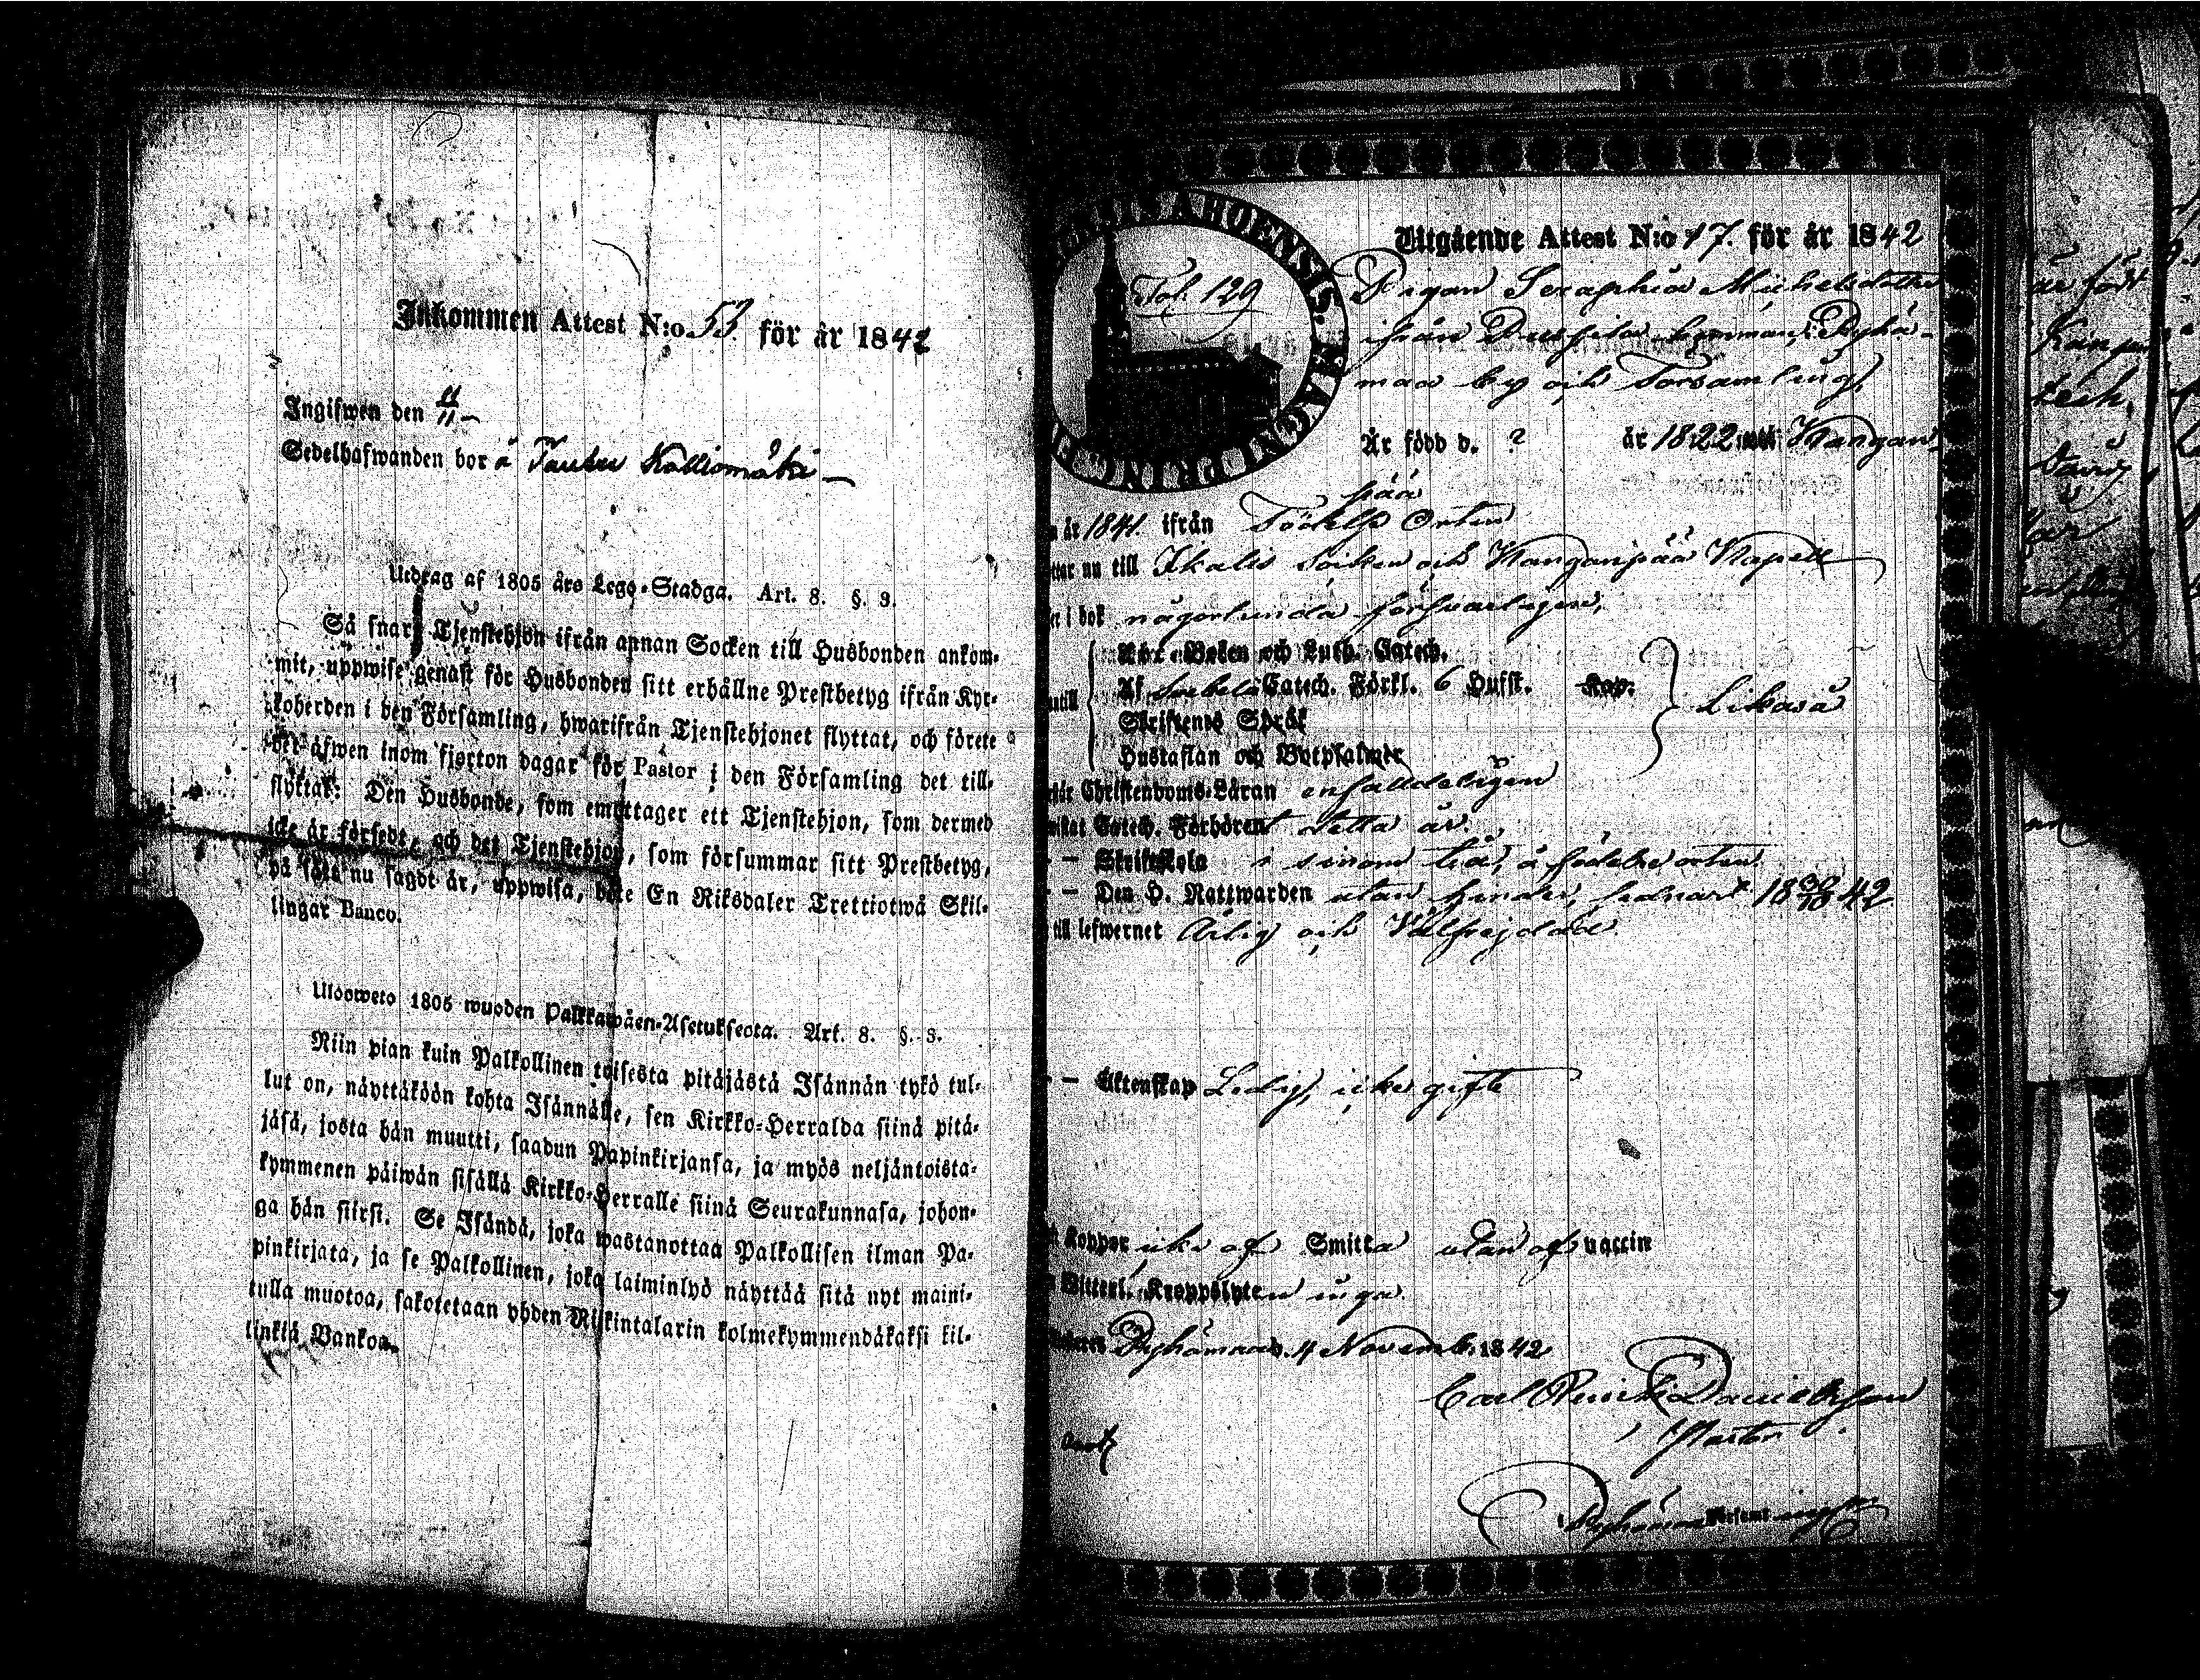 Inkommen Attest N:o 53. för år 1842
Ingifwen den 11/11 –
Sedelhafwanden bor å Kalliomäki –
Utdrag af 1805 års Lego-Stadga. Art. 8. §. 3.
Så snart Tjenstehjon ifrån annan Socken till Husbonden ankom-
mit, uppwise genast för Husbonden sitt erhållne Prestbetyg ifrån Kyr-
koherden i den Församling, hwarifrån Tjenstehjonet flyttat, och förete
det äfwen inom fjorton dagar för Pastor i den Församling det till-
flyttat: Den Husbonde, som emottager ett Tjenstehjon, som dermed
icke är försedt, och det Tjenstehjon, som försummar sitt Prestbetyg,
på sätt nu sagdt är, uppwisa, böte En Riksdaler Trettiotwå Skil-
lingar Banco.
Ulosweto 1805 wuoden Palkkawäen-Asetuksesta. Art. 8. §. 3.
Niin pian kuin Palkollinen toisesta pitäjästä Isännän tykö tul-
lut on, näyttäköön kohta Isännälle, sen Kirkko-Herralda siinä pitä-
jäsä, josta hän muutti, saadun Papinkirjansa, ja myös neljäntoista-
kymmenen päiwän sisällä Kirkko-Herralle siinä Seurakunnasa, johon-
ga hän siirsi. Se Isändä, joka wastanottaa Palkollisen ilman Pa-
pinkirjata, ja se Palkollinen, joka laiminlyö näyttää sitä nyt maini-
tulla muotoa, sakotetaan yhden Riikintalarin kolmekymmendäkaksi kil-
linkiä Bankoa.
AHOENSIS. MAGNI PRINC
Fol. 129
Utgående Attest N:o 17. för år 1842
Pigan Seraphia Michelsdotter
ifrån hemman i Pyhä-
maa by och Församling,
Är född d. ? år 1822 Kangan-
pää
år 1841. ifrån Födelse Orten
nu till Ikalis Socken och Kanganpää Kapell
i bok någorlunda försvarligen,
Abc-Boken och Luth. Catech.
Af Svebelii Catech. Förkl. 6 Hufst. Kap.
Skriftens Språk
Hustaflan och Botpsalmer
Likaså
Christendoms-Läran enfaldeligen
Catech. Förhören detta år.
– Skriftskola i sinom tid, å födelse orten.
– Den H. Nattwarden utan hinder, senast 18 30/10 42.
till lefwernet Ärlig och Välfrejdad.
– Äktenskap Ledig, icke gift
Koppor icke af Smitta utan af vaccin
Witterl. Kroppslyten inga.
Pyhämaa d. 4 Novemb. 1842
Carl Danielsson
Pastor
Pyhämaa Församling